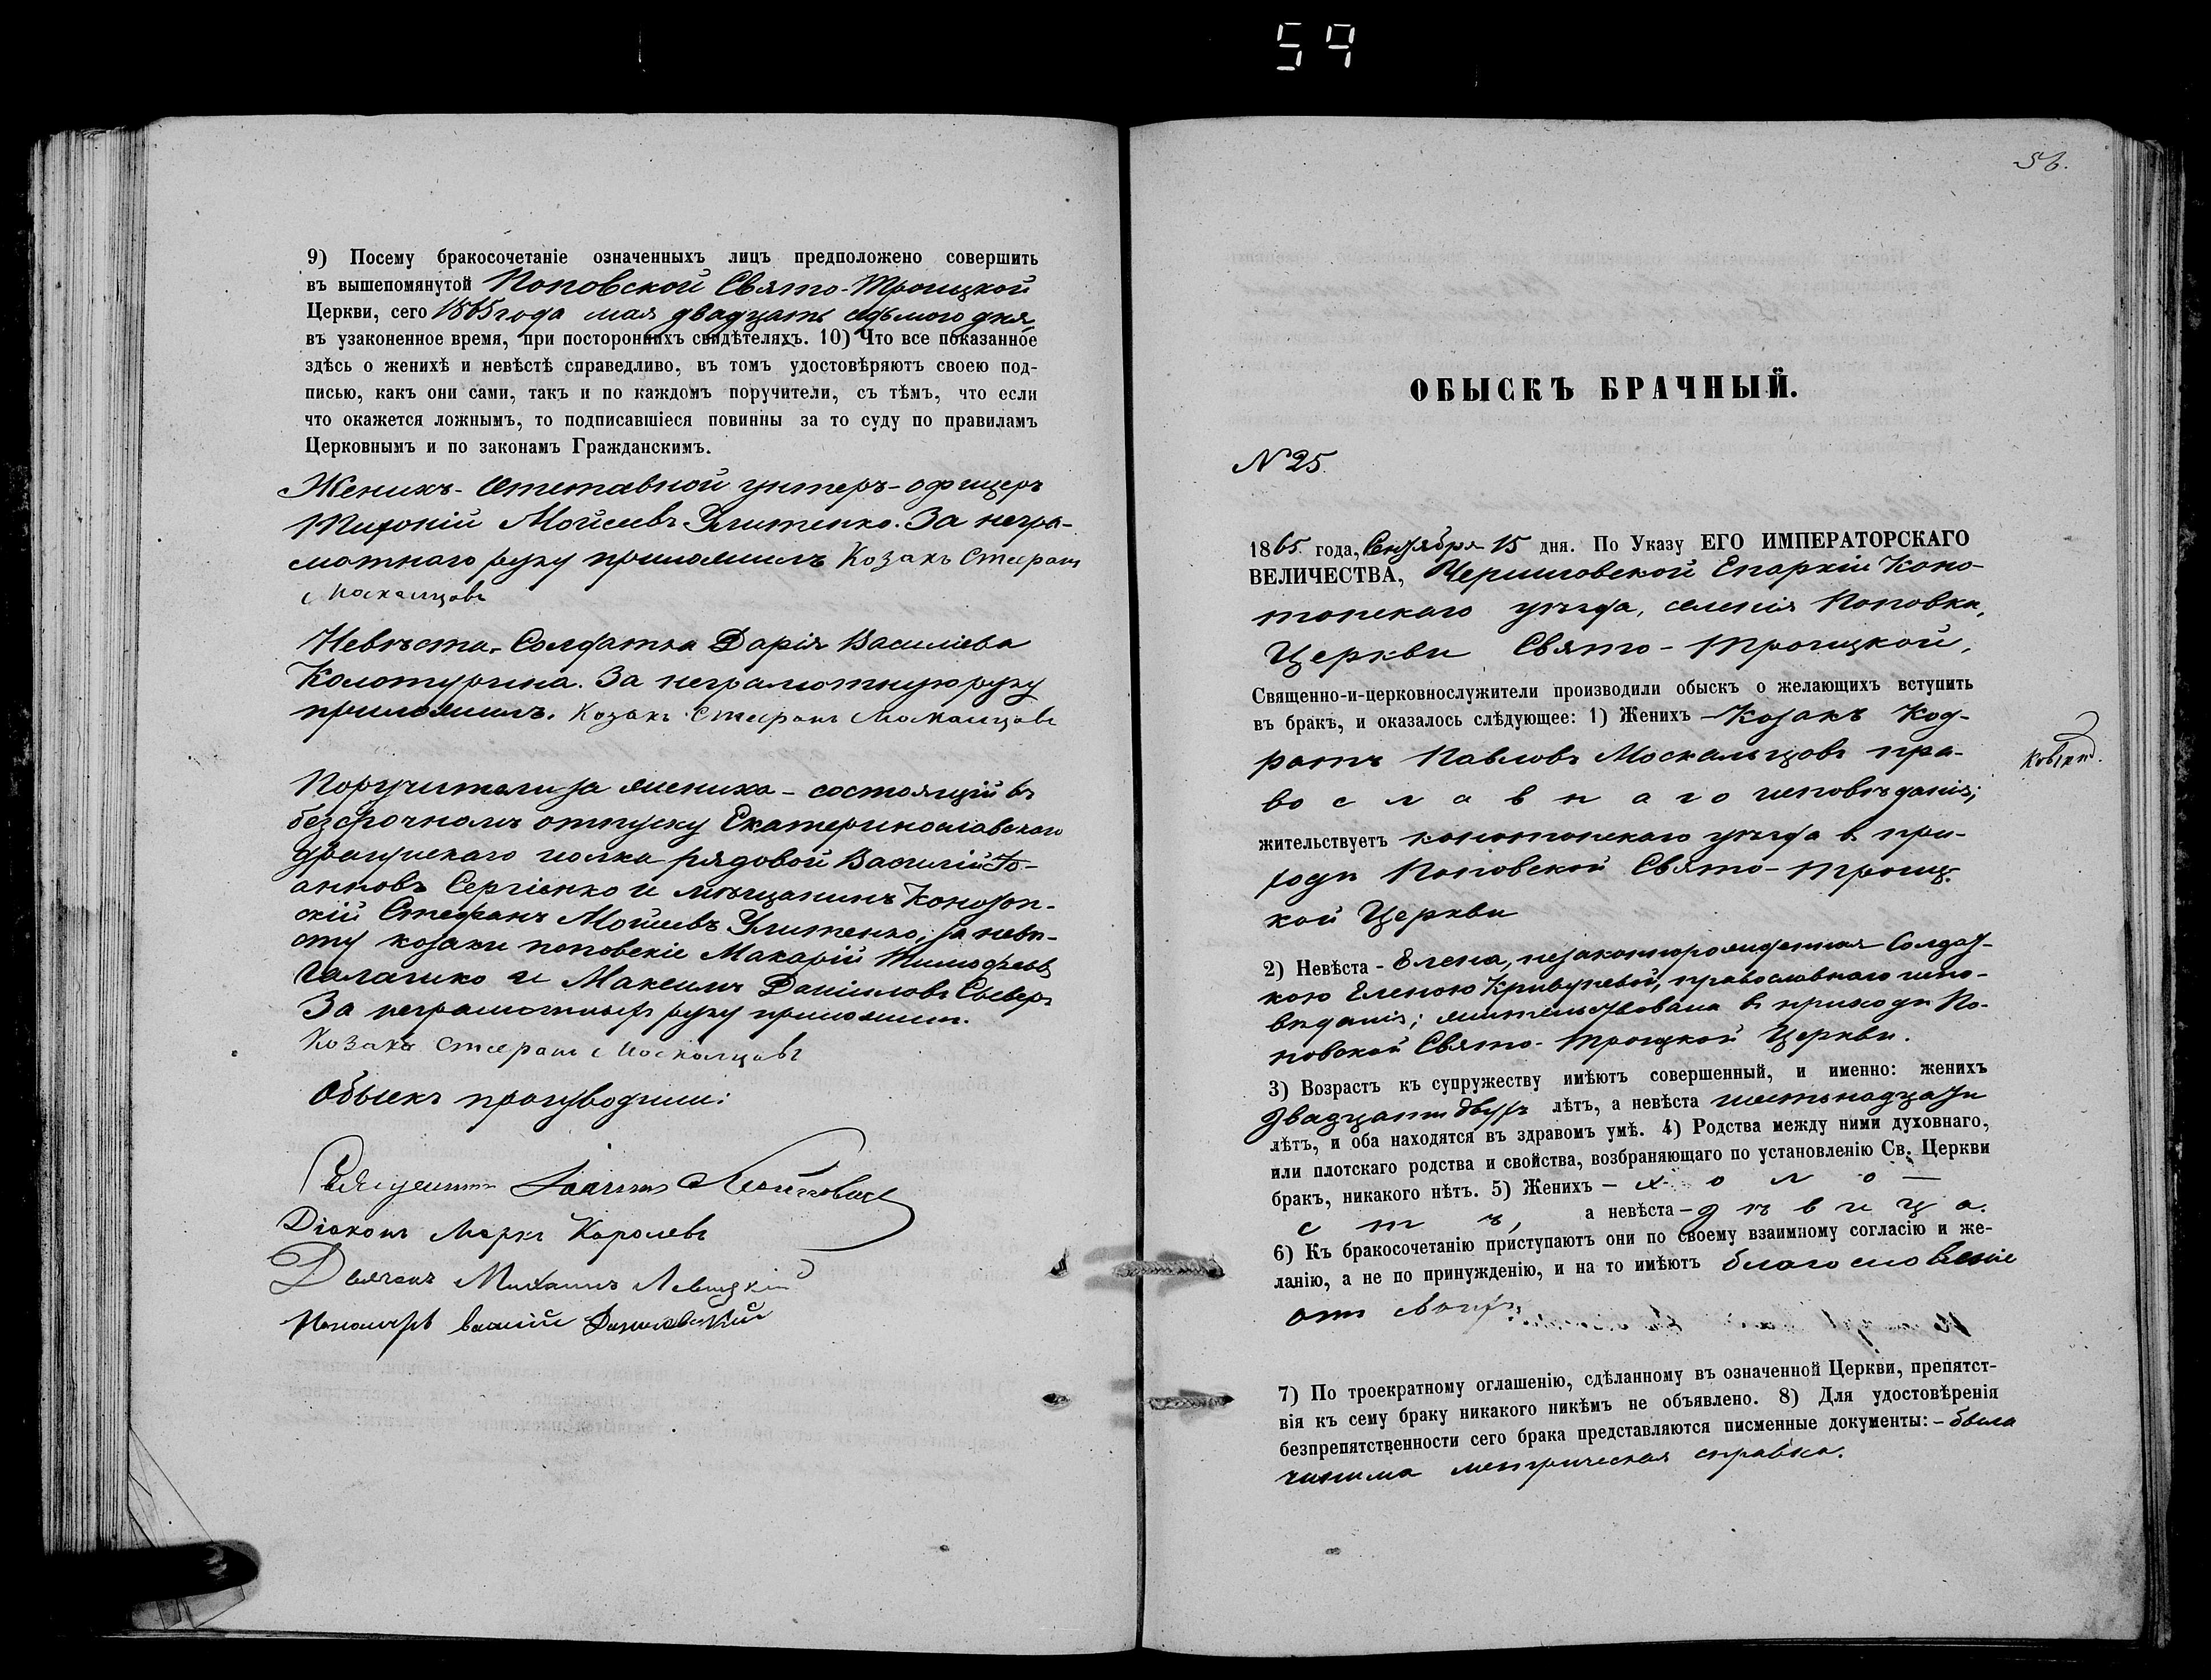 59
9) Посему бракосочетаніе означенныхъ лицъ предположено совершить
въ вышепомянутой Поповской Свято-Троицкой
Церкви, сего 1865 года мая двадцать седьмого дня,
въ узаконенное время, при постороннихъ свидѣтеляхъ. 10) Что все показанное
здѣсь о женихѣ и невѣстѣ справедливо, въ томъ удостовѣряютъ своею под-
писью, какъ они сами, такъ и по каждомъ поручители, съ тѣмъ, что если
что окажется ложнымъ, то подписавшіеся повинны за то суду по правиламъ
Церковнымъ и по законамъ Гражданскимъ.
Женихъ - Отставной унтеръ-офицеръ
Мойсеевъ Улитенко. За негра-
мотнаго руку приложилъ Козакъ Стефанъ
Москалцовъ
Невѣста, Солдатка Дарія Василіева
Колотурина. За неграмотную руку
приложилъ. Козакъ Стефанъ Москалцовъ
Поручители за жениха - состоящій въ
безсрочномъ отпуску Екатеринославскаго
драгунскаго полка рядовой Василій Іо-
анновъ Сергіенко и мѣщанинъ Конотоп-
скій Стефанъ Моисеевъ Улитенко; за невѣ-
сту козаки поповскіе Макарій Тимофеевъ
и Максимъ Даніиловъ
За неграмотныхъ руку приложилъ.
Козакъ Стефанъ Москалцовъ
Обыскъ производили:
Священникъ Іоаннъ
Діаконъ Маркъ Королевъ
Дьячекъ Михаилъ Левицкій
Пономарь Василій Даниловскій
56.
ОБЫСКЪ БРАЧНЫЙ.
N 25.
1865 года, Сентября 15 дня. По Указу ЕГО ИМПЕРАТОРСКАГО
ВЕЛИЧЕСТВА, Черниговской Епархіи Коно-
топскаго уѣзда, селенія Поповка,
Церкви Свято-Троицкой,
Священно-и-церковнослужители производили обыскъ о желающихъ вступить
въ бракъ, и оказалось слѣдующее: 1) Женихъ - Козакъ Код-
ратъ Павловъ Москальцовъ пра-
вославнаго исповѣданія;
жительствуетъ конотопскаго уѣзда въ при-
ходѣ Поповской Свято-Троиц-
кой Церкви
2) Невѣста - Елена, незаконнорожденная Солдат-
кою Еленою Кривулевой, православнаго испо-
вѣданія; жительствовала въ приходѣ По-
повской Свято-Троицкой Церкви.
3) Возрастъ къ супружеству имѣютъ совершенный, и именно: женихъ
двадцати двухъ лѣтъ, а невѣста шестьнадцати
лѣтъ, и оба находятся въ здравомъ умѣ. 4) Родства между ними духовнаго,
или плотскаго родства и свойства, возбраняющаго по установленію Св. Церкви
бракъ, никакого нѣтъ. 5) Женихъ - холо-
стъ, а невѣста - дѣвица.
6) Къ бракосочетанію приступаютъ они по своему взаимному согласію и же-
ланію, а не по принужденію, и на то имѣютъ благословеніе
отъ
7) По троекратному оглашенію, сдѣланному въ означенной Церкви, препятст-
вія къ сему браку никакого никѣмъ не объявлено. 8) Для удостовѣренія
безпрепятственности сего брака представляются писменные документы: - была
чинима метрическая справка.